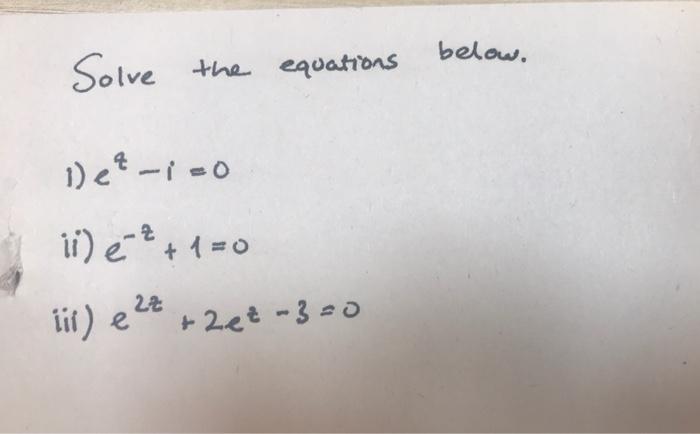 Solve the equations below.
i) e^z - i = 0
ii) e^-z + 1 = 0
iii) e^2z + 2e^z - 3 = 0